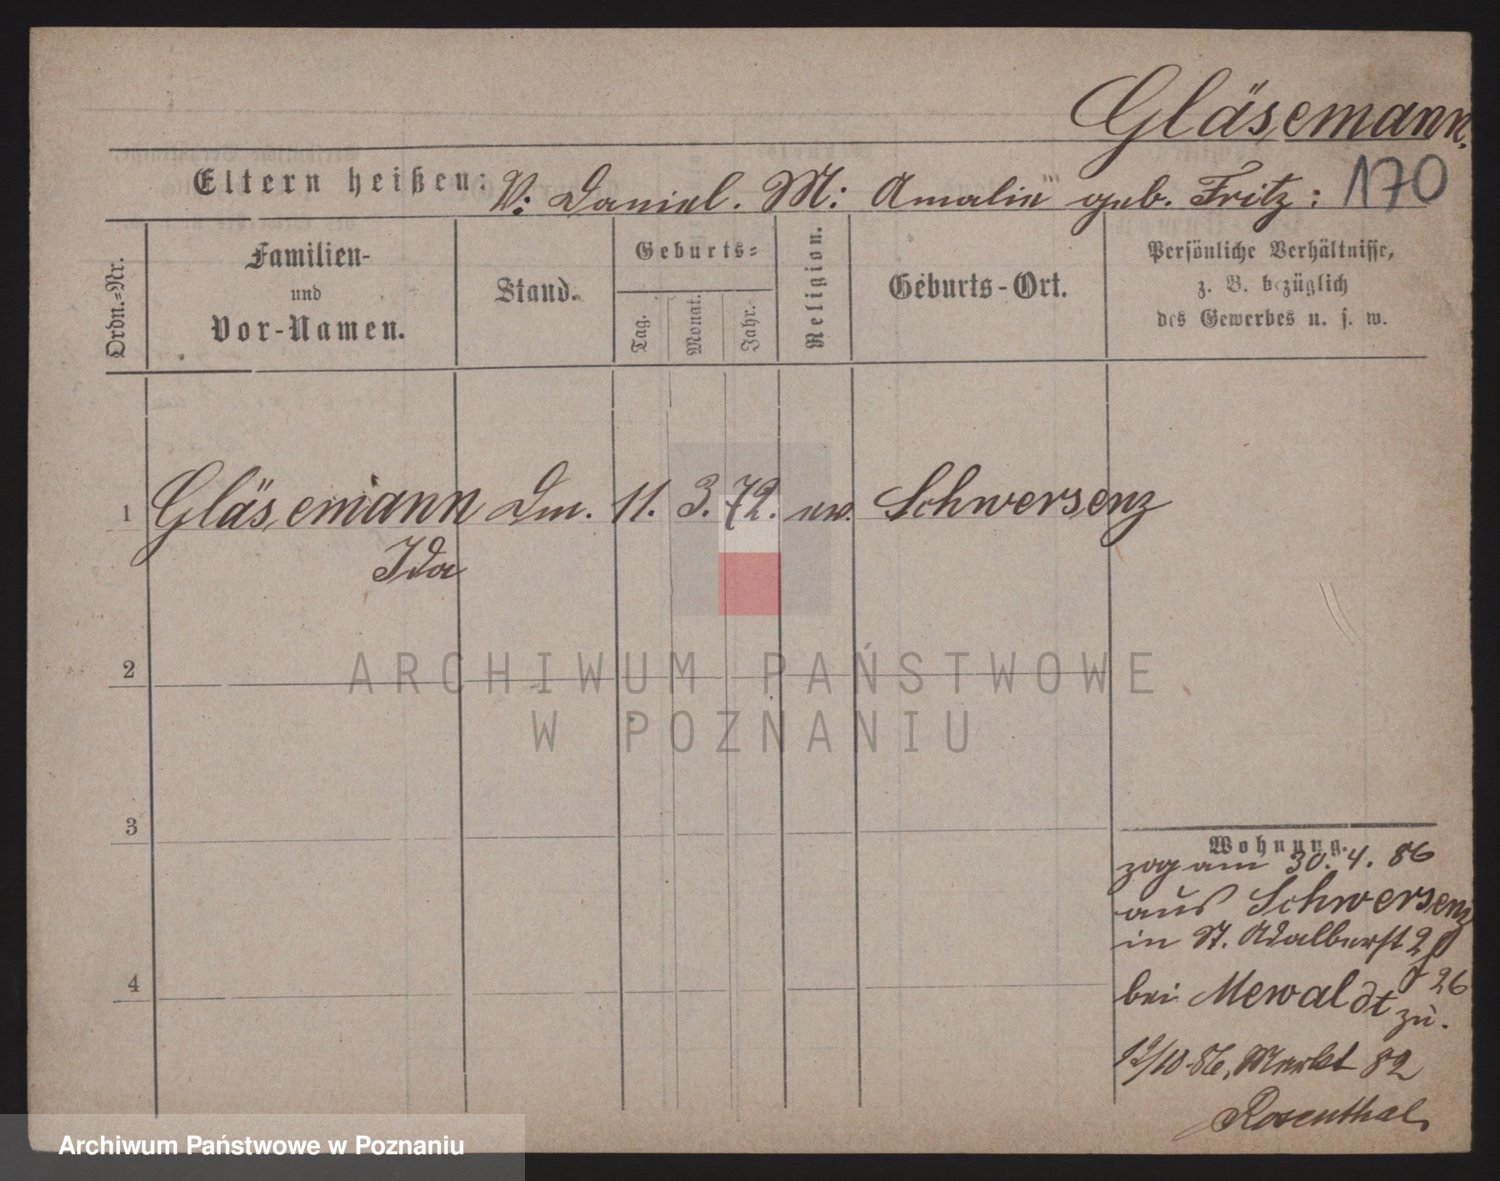 Gläsemann.
Eltern heißen: V: Daniel. M: Amalie geb. Fritz: 170
Ordn.=Nr.
Familien-
und
Vor-Namen.
Stand.
Geburts=
Tag.
Monat.
Jahr.
Religion.
Geburts-Ort.
Persönliche Verhältnisse,
z. B. bezüglich
des Gewerbes u. s. w.
1 Gläsemann Dm. 11. 3. 72. ev. Schwersenz
Ida
2
3
4
Wohnung.
zog am 30. 4. 86
aus Schwersenz
in St. Adalberst
26
bei Mewaldt zu.
/10 86, Markt 82
Rosenthal
ARCHIWUM PAŃSTWOWE
W POZNANIU
Archiwum Państwowe w Poznaniu